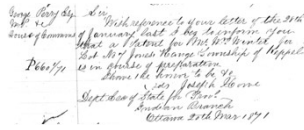 George Perry Esq
Sir
With reference to your letter of the 28th
January last I beg to inform you
that a Patent for Mr. W. Winter for
Lot No 7 Jones Range Township of Keppel
is in course of preparation
I have the honor to be &c
Joseph Howe
Dept Secy of State for Prov
Indian Branch
Ottawa 20th Mar 1871